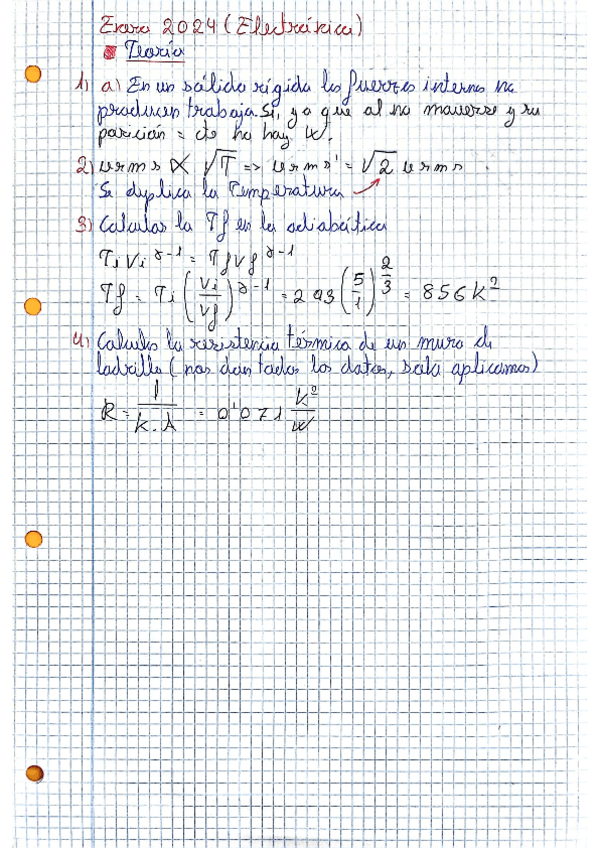 Enero 2024 (Electrónica)
Teoría
1) a) En un sólido rígido las fuerzas internas no
producen trabajo. Sí, ya que al no moverse y su
posición = cte no hay W.
2) vrms ∝ √T => vrms' = √2 vrms
Se duplica la Temperatura
3) Calculas la Tf en la adiabática
Ti Vi^γ-1 = Tf Vf^γ-1
Tf = Ti (Vi/Vf)^γ-1 = 293 (5/1)^2/3 = 856 k
4) Calculas la resistencia térmica de un muro de
ladrillo (nos dan todos los datos, solo aplicamos)
R = l/k·A = 0'071 k/W